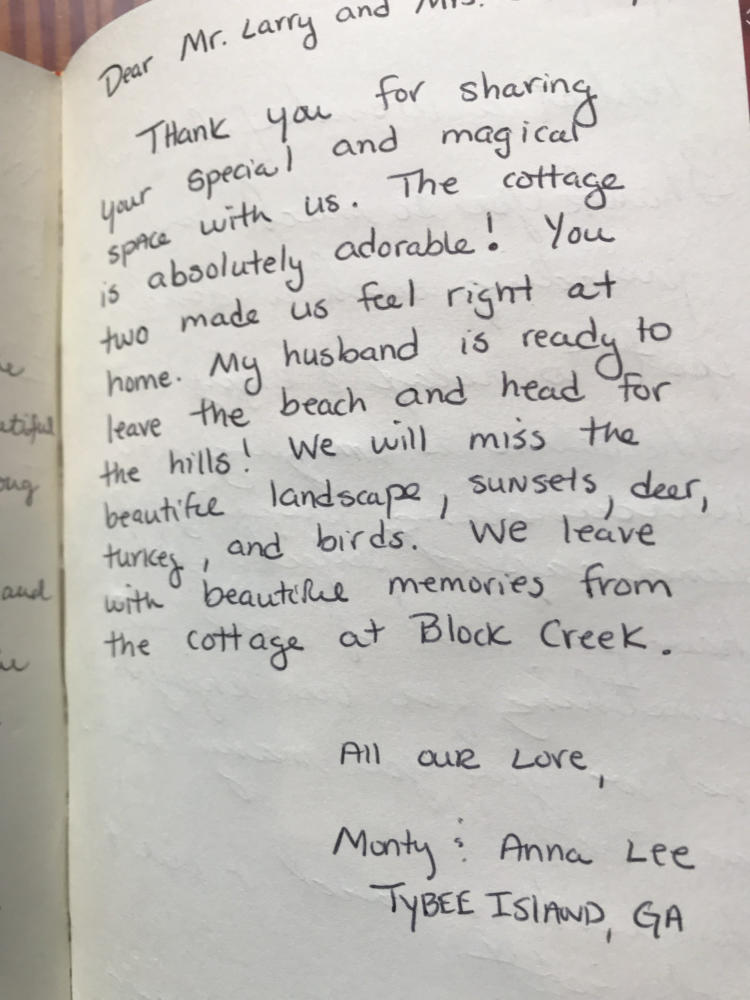 Dear Mr. Larry and Mrs.
THank you for sharing
your special and magical
space with us. The cottage
is absolutely adorable! You
two made us feel right at
home. My husband is ready to
leave the beach and head for
the hills! We will miss the
beautiful landscape, sunsets, deer,
turkey, and birds. We leave
with beautiful memories from
the cottage at Block Creek.
All our Love,
Monty & Anna Lee
TYBEE ISLAND, GA
and